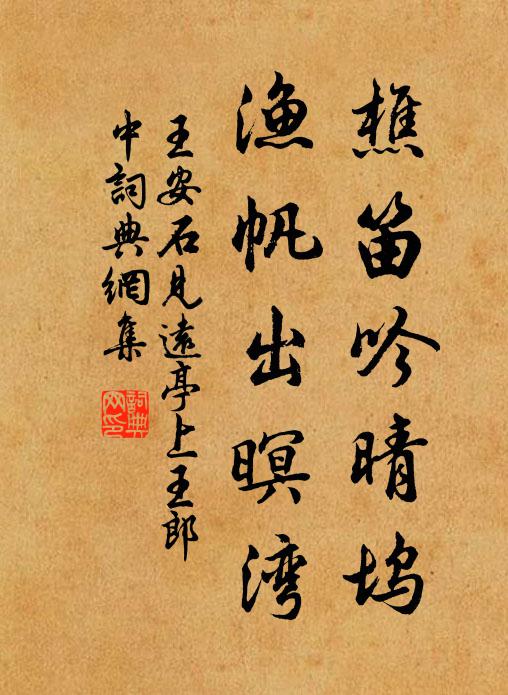 樵笛吟晴坞
渔帆出暝湾
王安石見遠亭上王郎
中詞典網集
詞典
网印